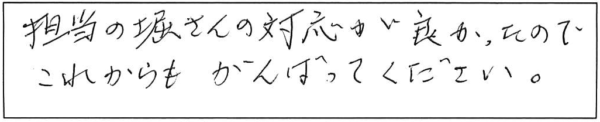 担当の堀さんの対応が良かったので
これからも がんばってください。